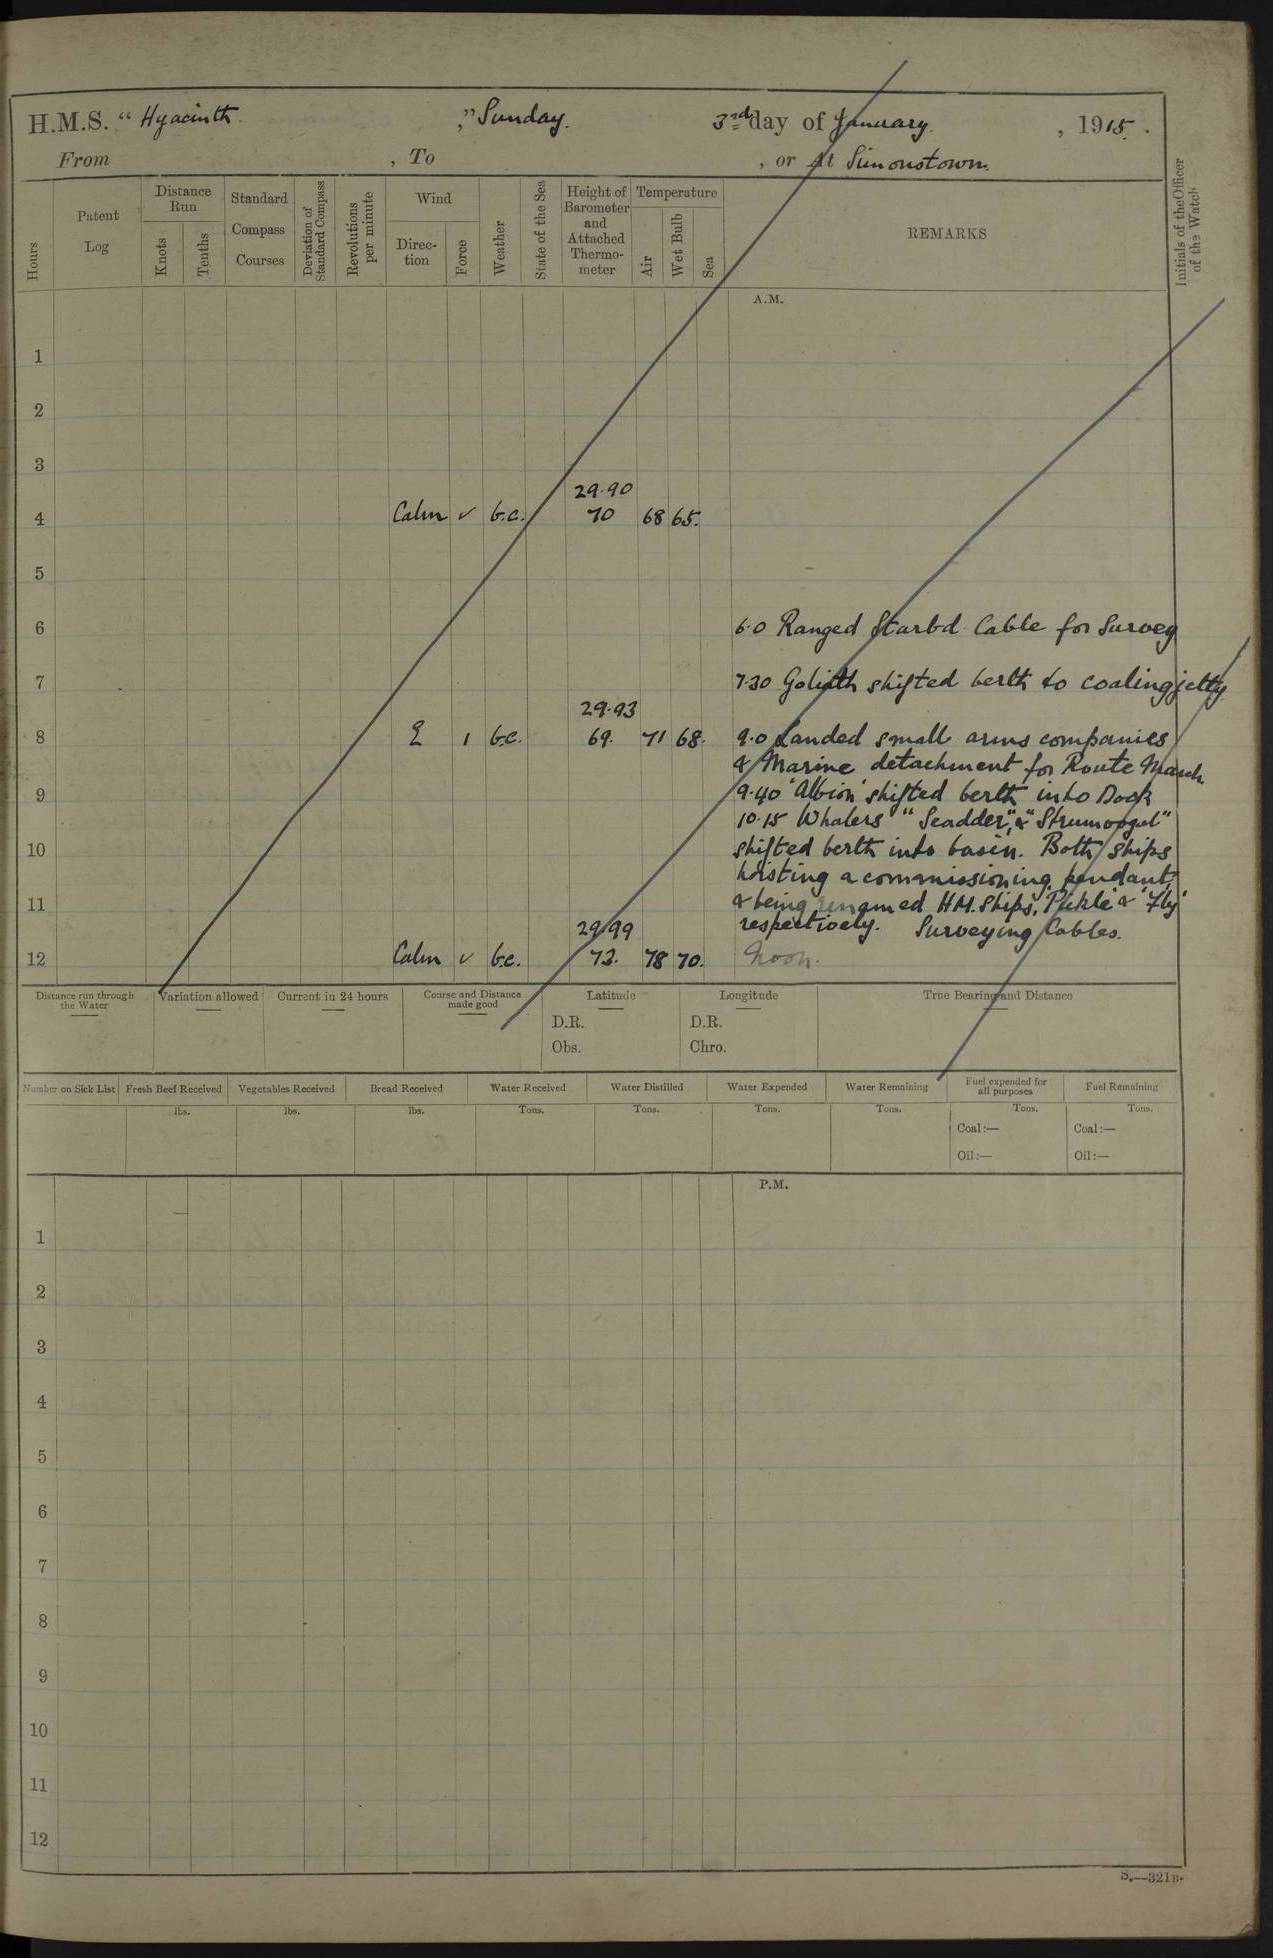 H.M.S. “ Hyacinth ,” Sunday. 3rd day of January , 1915.
From , To , or At Simonstown.
Hours
Patent Log
Distance Run
Knots
Tenths
Standard Compass Courses
Deviation of Standard Compass
Revolutions per minute
Wind
Direc-tion
Force
Weather
State of the Sea
Height of Barometer and Attached Thermo-meter
Temperature
Air
Wet Bulb
Sea
REMARKS
Initials of the Officer of the Watch
A.M.
1
2
3
29.90
4 Calm ✓ b.c. 70 68 65.
5
6 6.0 Ranged Starbd Cable for Survey
7 7.30 Goliath shifted berth to coaling jetty
29.93
8 E 1 b.c. 69. 71 68. 9.0 Landed small arms companies
& Marine detachment for Route March
9 9.40 'Albion' shifted berth into Dock
10.15 Whalers "Seadder", & "Strumvogel"
10 shifted berth into basin. Both ships
hoisting a commissioning pendant,
11 & being renamed HM. Ships, 'Pickle' & 'Fly'
29.99 respectively. Surveying Cables.
12 Calm ✓ b.c. 73. 78 70. Noon.
Distance run through the Water
Variation allowed
Current in 24 hours
Course and Distance made good
Latitude
Longitude
True Bearing and Distance
D.R. D.R.
Obs. Chro.
Number on Sick List Fresh Beef Received Vegetables Received Bread Received Water Received Water Distilled Water Expended Water Remaining Fuel expended for all purposes Fuel Remaining
lbs. lbs. lbs. Tons. Tons. Tons. Tons. Tons. Tons.
Coal:— Coal:—
Oil:— Oil:—
P.M.
1
2
3
4
5
6
7
8
9
10
11
12
S.—321B.